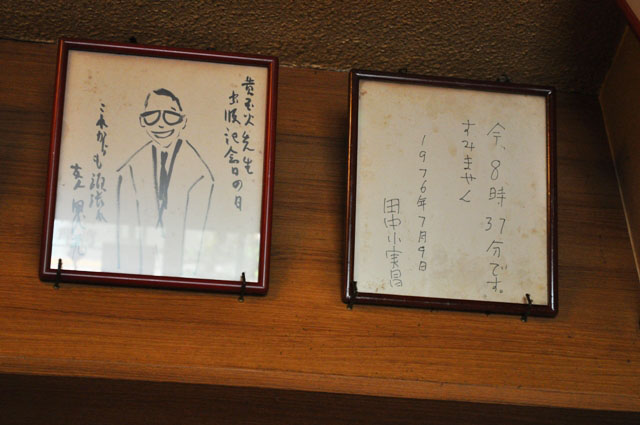 先生
出版記念日の日
これからも
今、8時37分です。
すみません
1976年7月9日
田中小実昌